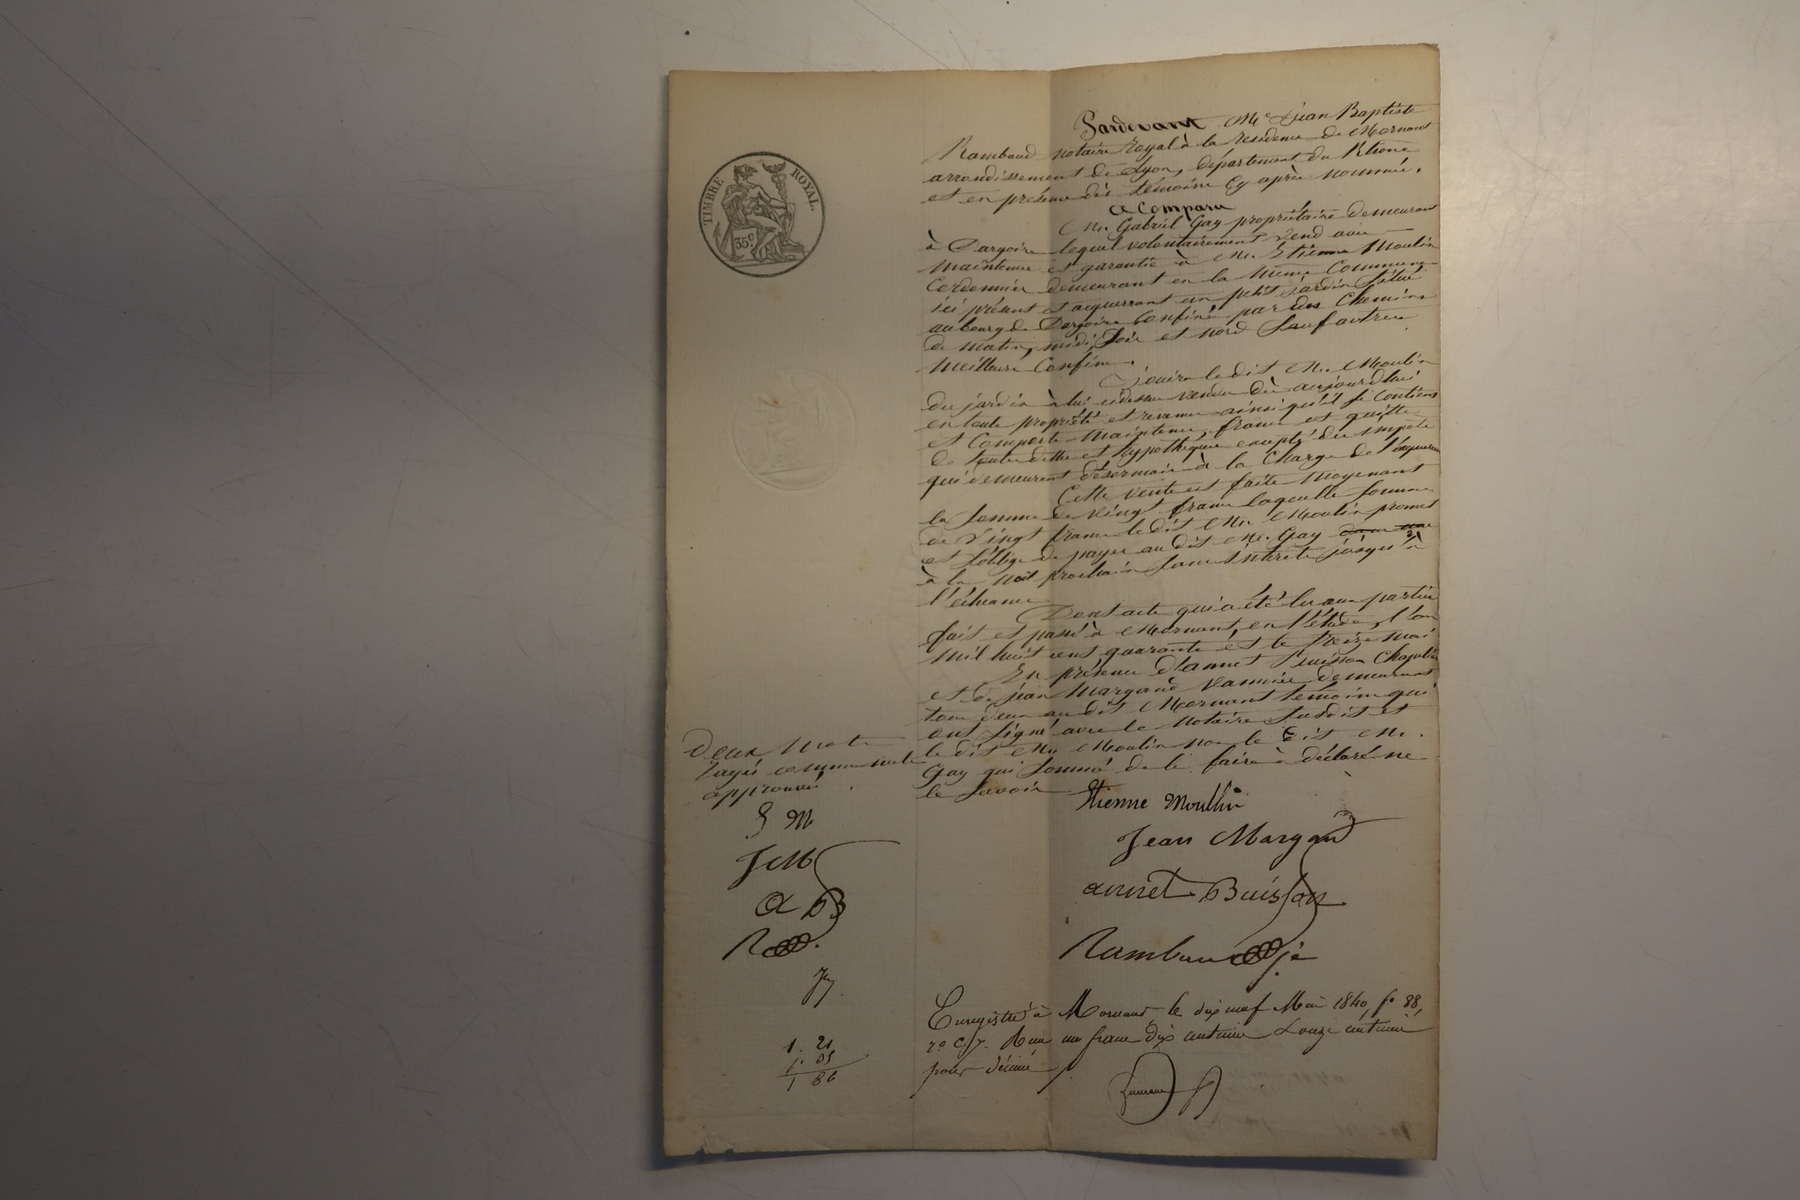 TIMBRE ROYAL.
35c
Pardevant Me Jean Baptiste
Rambaud notaire Royal à la résidence de Mornant
arrondissement de Lyon, département du Rhône
et en présence des témoins cy après nommés.
a Comparu
Mr. Gabriel Gay propriétaire demeurant
à Dargoire lequel volontairement vend avec
maintenue et garantie à Mr. Etienne Moulin
Cordonnier demeurant en la même Commune
ici présent et acquerrant un petit jardin situé
au bourg de Dargoire Confiné par des Chemins
de matin, midi, Soir et nord Sauf autres
meilleurs Confins.
Jouira le dit Mr. Moulin
du jardin à lui cidessus vendu dès aujourd'hui
en toute propriété et revenu ainsi qu'il se Contient
et Comporte Maintenu, franc et quitte
de toute dette et hypothèque excepté des impots
qui demeurent désormais à la Charge de l'acquereur
Cette vente est faite moyenant
la Somme de vingt francs laquelle Somme
de vingt francs le dit Mr. Moulin promet
et s'oblige de payer au dit Mr. Gay
à la Noël prochain Sans intérêts jusqu'à
l'échéance
Dont acte qui a été lu aux parties
fait et passé à Mornant, en l'étude, l'an
mil huit cent quarante et le treize mai
En présence d'annet Buisson Chapelier
et de jean Margand Vannier demeurant
tous deux au dit Mornant témoins qui
ont Signé avec le Notaire Susdit et
le dit Mr. Moulin non le dit Mr.
Gay qui Sommé de le faire à déclaré ne
le Savoir
Deux Mots
rayés comme nuls
approuvés
E M
J M
a B
R
Etienne Moullin
Jean Margand
annet Buisson
Rambaud
Enregistré à Mornant le dix neuf Mai 1840, fo 88,
ro C. 7. Reçu un franc dix centimes
pour décime
1. 21
1 86